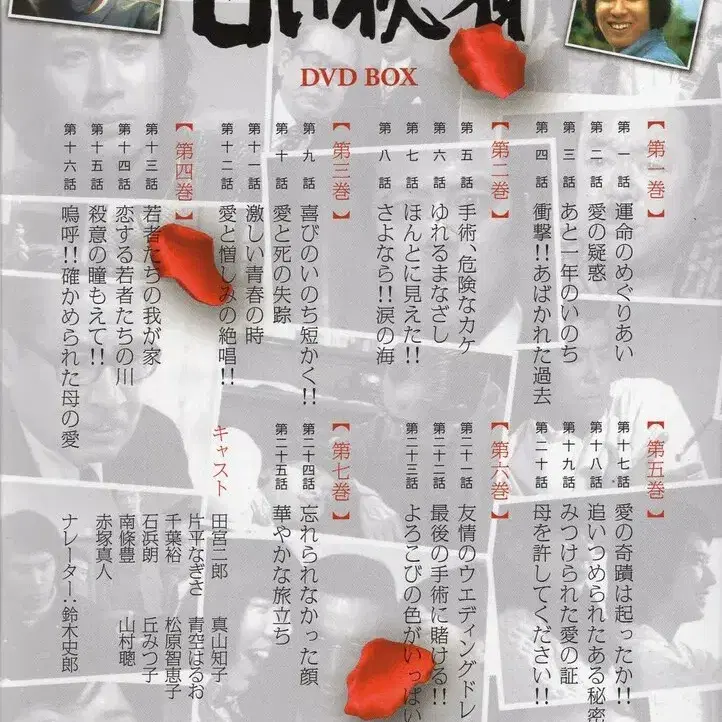 DVD BOX
【第一巻】
第一話 運命のめぐりあい
第二話 愛の疑惑
第三話 あと一年のいのち
第四話 衝撃!!あばかれた過去
【第二巻】
第五話 手術、危険なカケ
第六話 ゆれるまなざし
第七話 ほんとに見えた!!
第八話 さよなら!!涙の海
【第三巻】
第九話 喜びのいのち短かく!!
第十話 愛と死の失踪
第十一話 激しい青春の時
第十二話 愛と憎しみの絶唱!!
【第四巻】
第十三話 若者たちの我が家
第十四話 恋する若者たちの川
第十五話 殺意の瞳もえて!!
第十六話 嗚呼!!確かめられた母の愛
【第五巻】
第十七話 愛の奇蹟は起ったか!!
第十八話 追いつめられたある秘密
第十九話 みつけられた愛の証
第二十話 母を許してください!!
【第六巻】
第二十一話 友情のウエディングドレ
第二十二話 最後の手術に賭ける!!
第二十三話 よろこびの色がいっぱい
【第七巻】
第二十四話 忘れられなかった顔
第二十五話 華やかな旅立ち
キャスト
田宮二郎 真山知子
片平なぎさ 青空はるお
千葉裕 松原智恵子
石浜朗 丘みつ子
南條豊 山村聰
赤塚真人
ナレーター:鈴木史郎